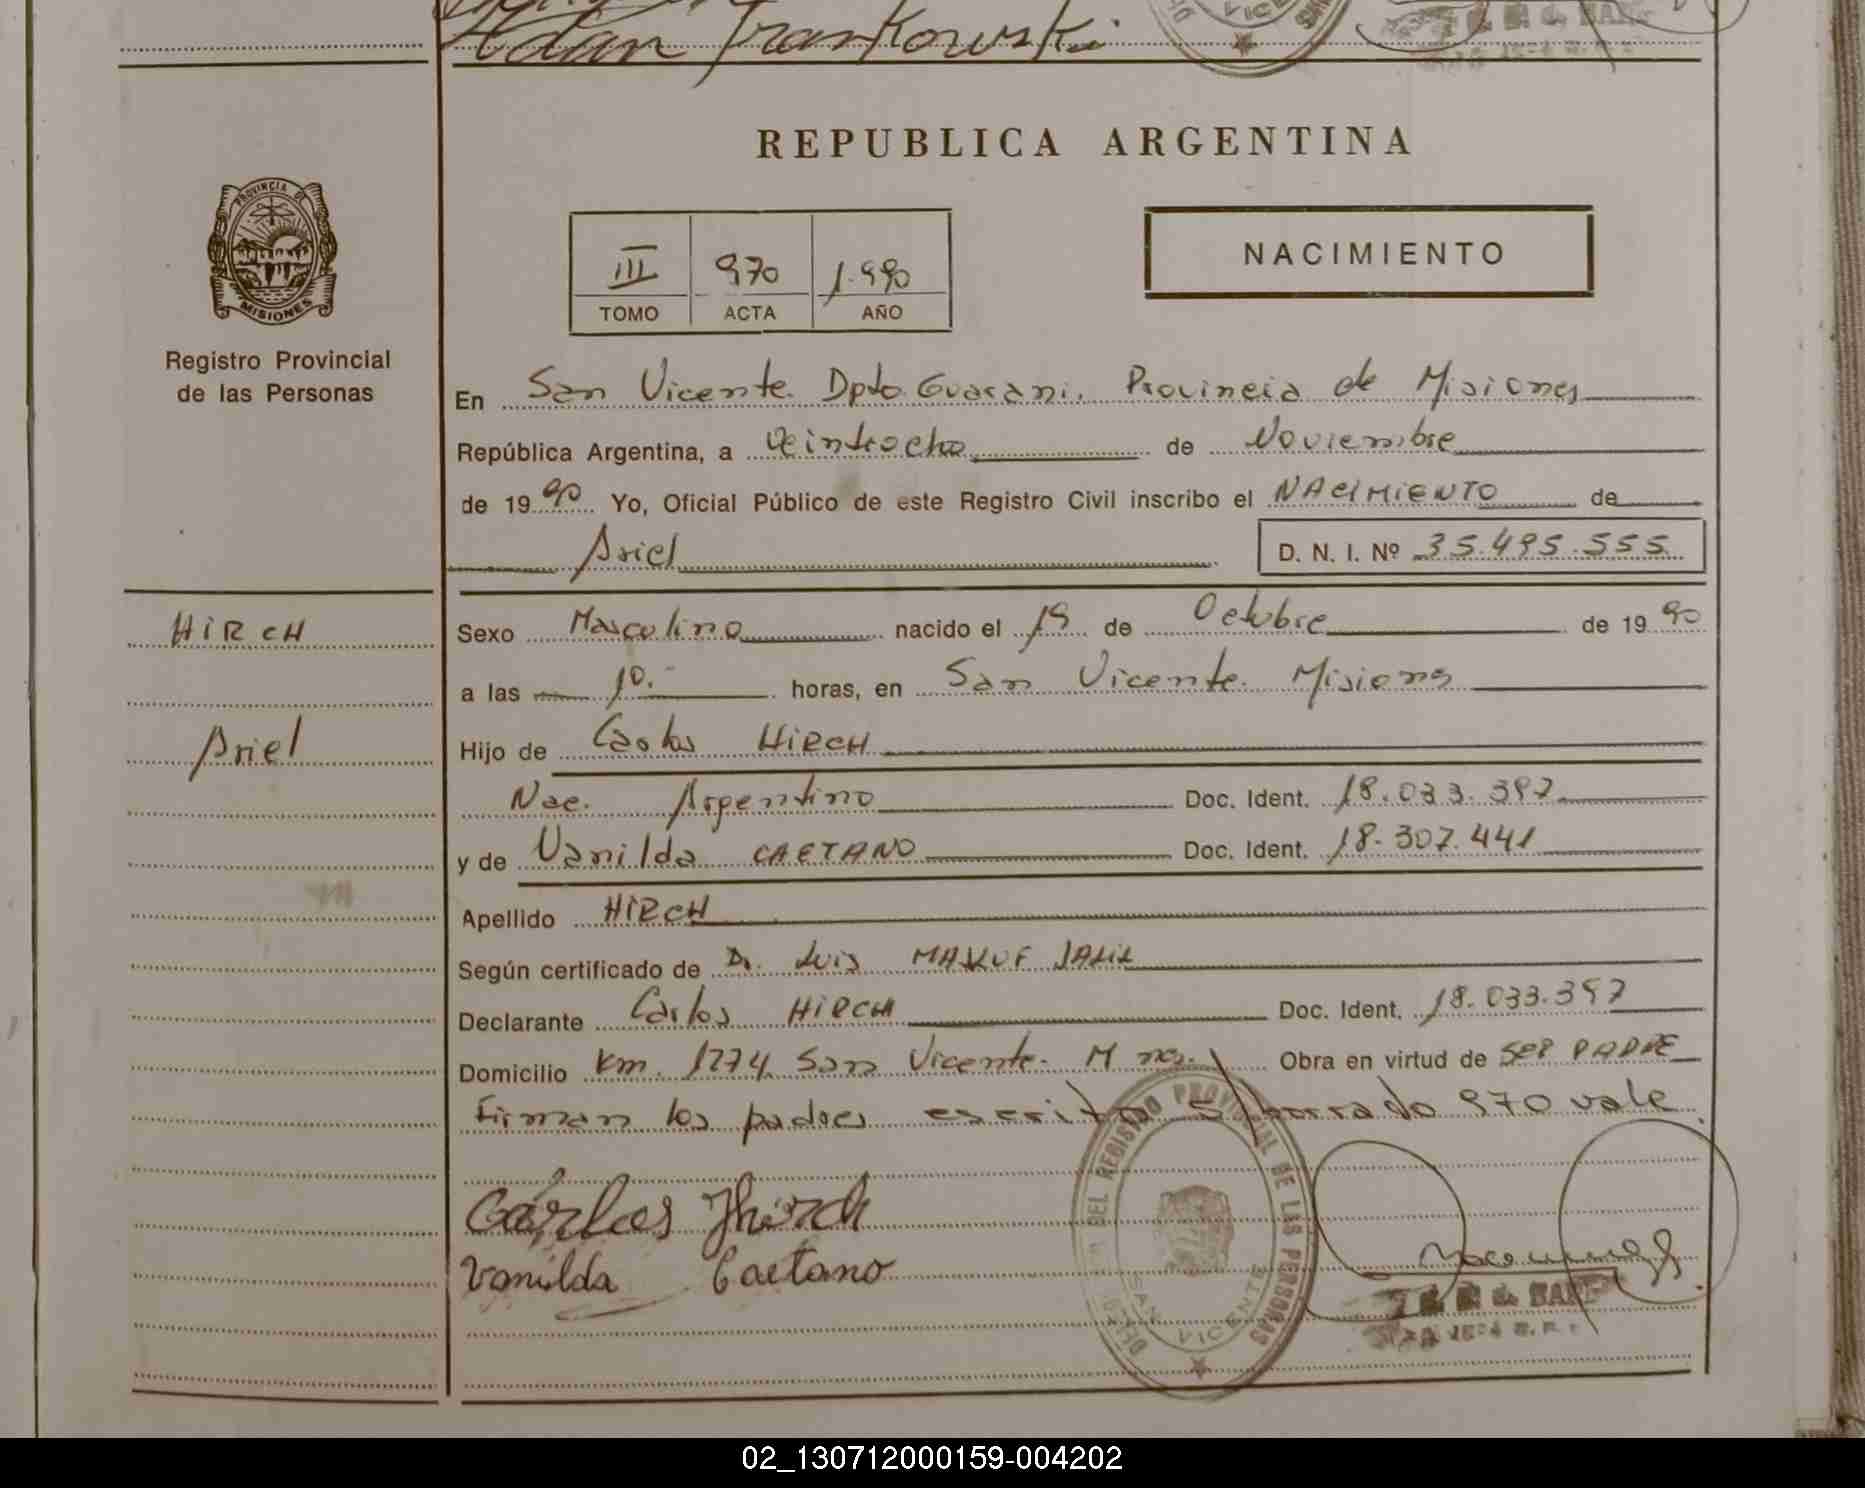 Adan Traskowski
REPUBLICA ARGENTINA
PROVINCIA DE MISIONES
Registro Provincial
de las Personas
III 970 1.990
TOMO ACTA AÑO
NACIMIENTO
En San Vicente. Dpto. Guarani. Provincia de Misiones
República Argentina, a Veintiocho de Noviembre
de 1990 Yo, Oficial Público de este Registro Civil inscribo el NACIMIENTO de
Ariel D. N. I. Nº 35.495.555
HIRCH
Ariel
Sexo Masculino nacido el 19 de Octubre de 1990
a las 10.- horas, en San Vicente. Misiones
Hijo de Carlos HIRCH
Nac. Argentino Doc. Ident. 18.033.397
y de Vanilda CAETANO Doc. Ident. 18.307.441
Apellido HIRCH
Según certificado de Dr. Luis
Declarante Carlos HIRCH Doc. Ident. 18.033.397
Domicilio Km. 1274 San Vicente. Mnes. Obra en virtud de SER PADRE
Firman los padres escrito s/borrado 970 vale.
Carlos Hirch
Vanilda Caetano
DEL REGISTRO PROVINCIAL DE LAS PERSONAS
SAN VICENTE
02_130712000159-004202